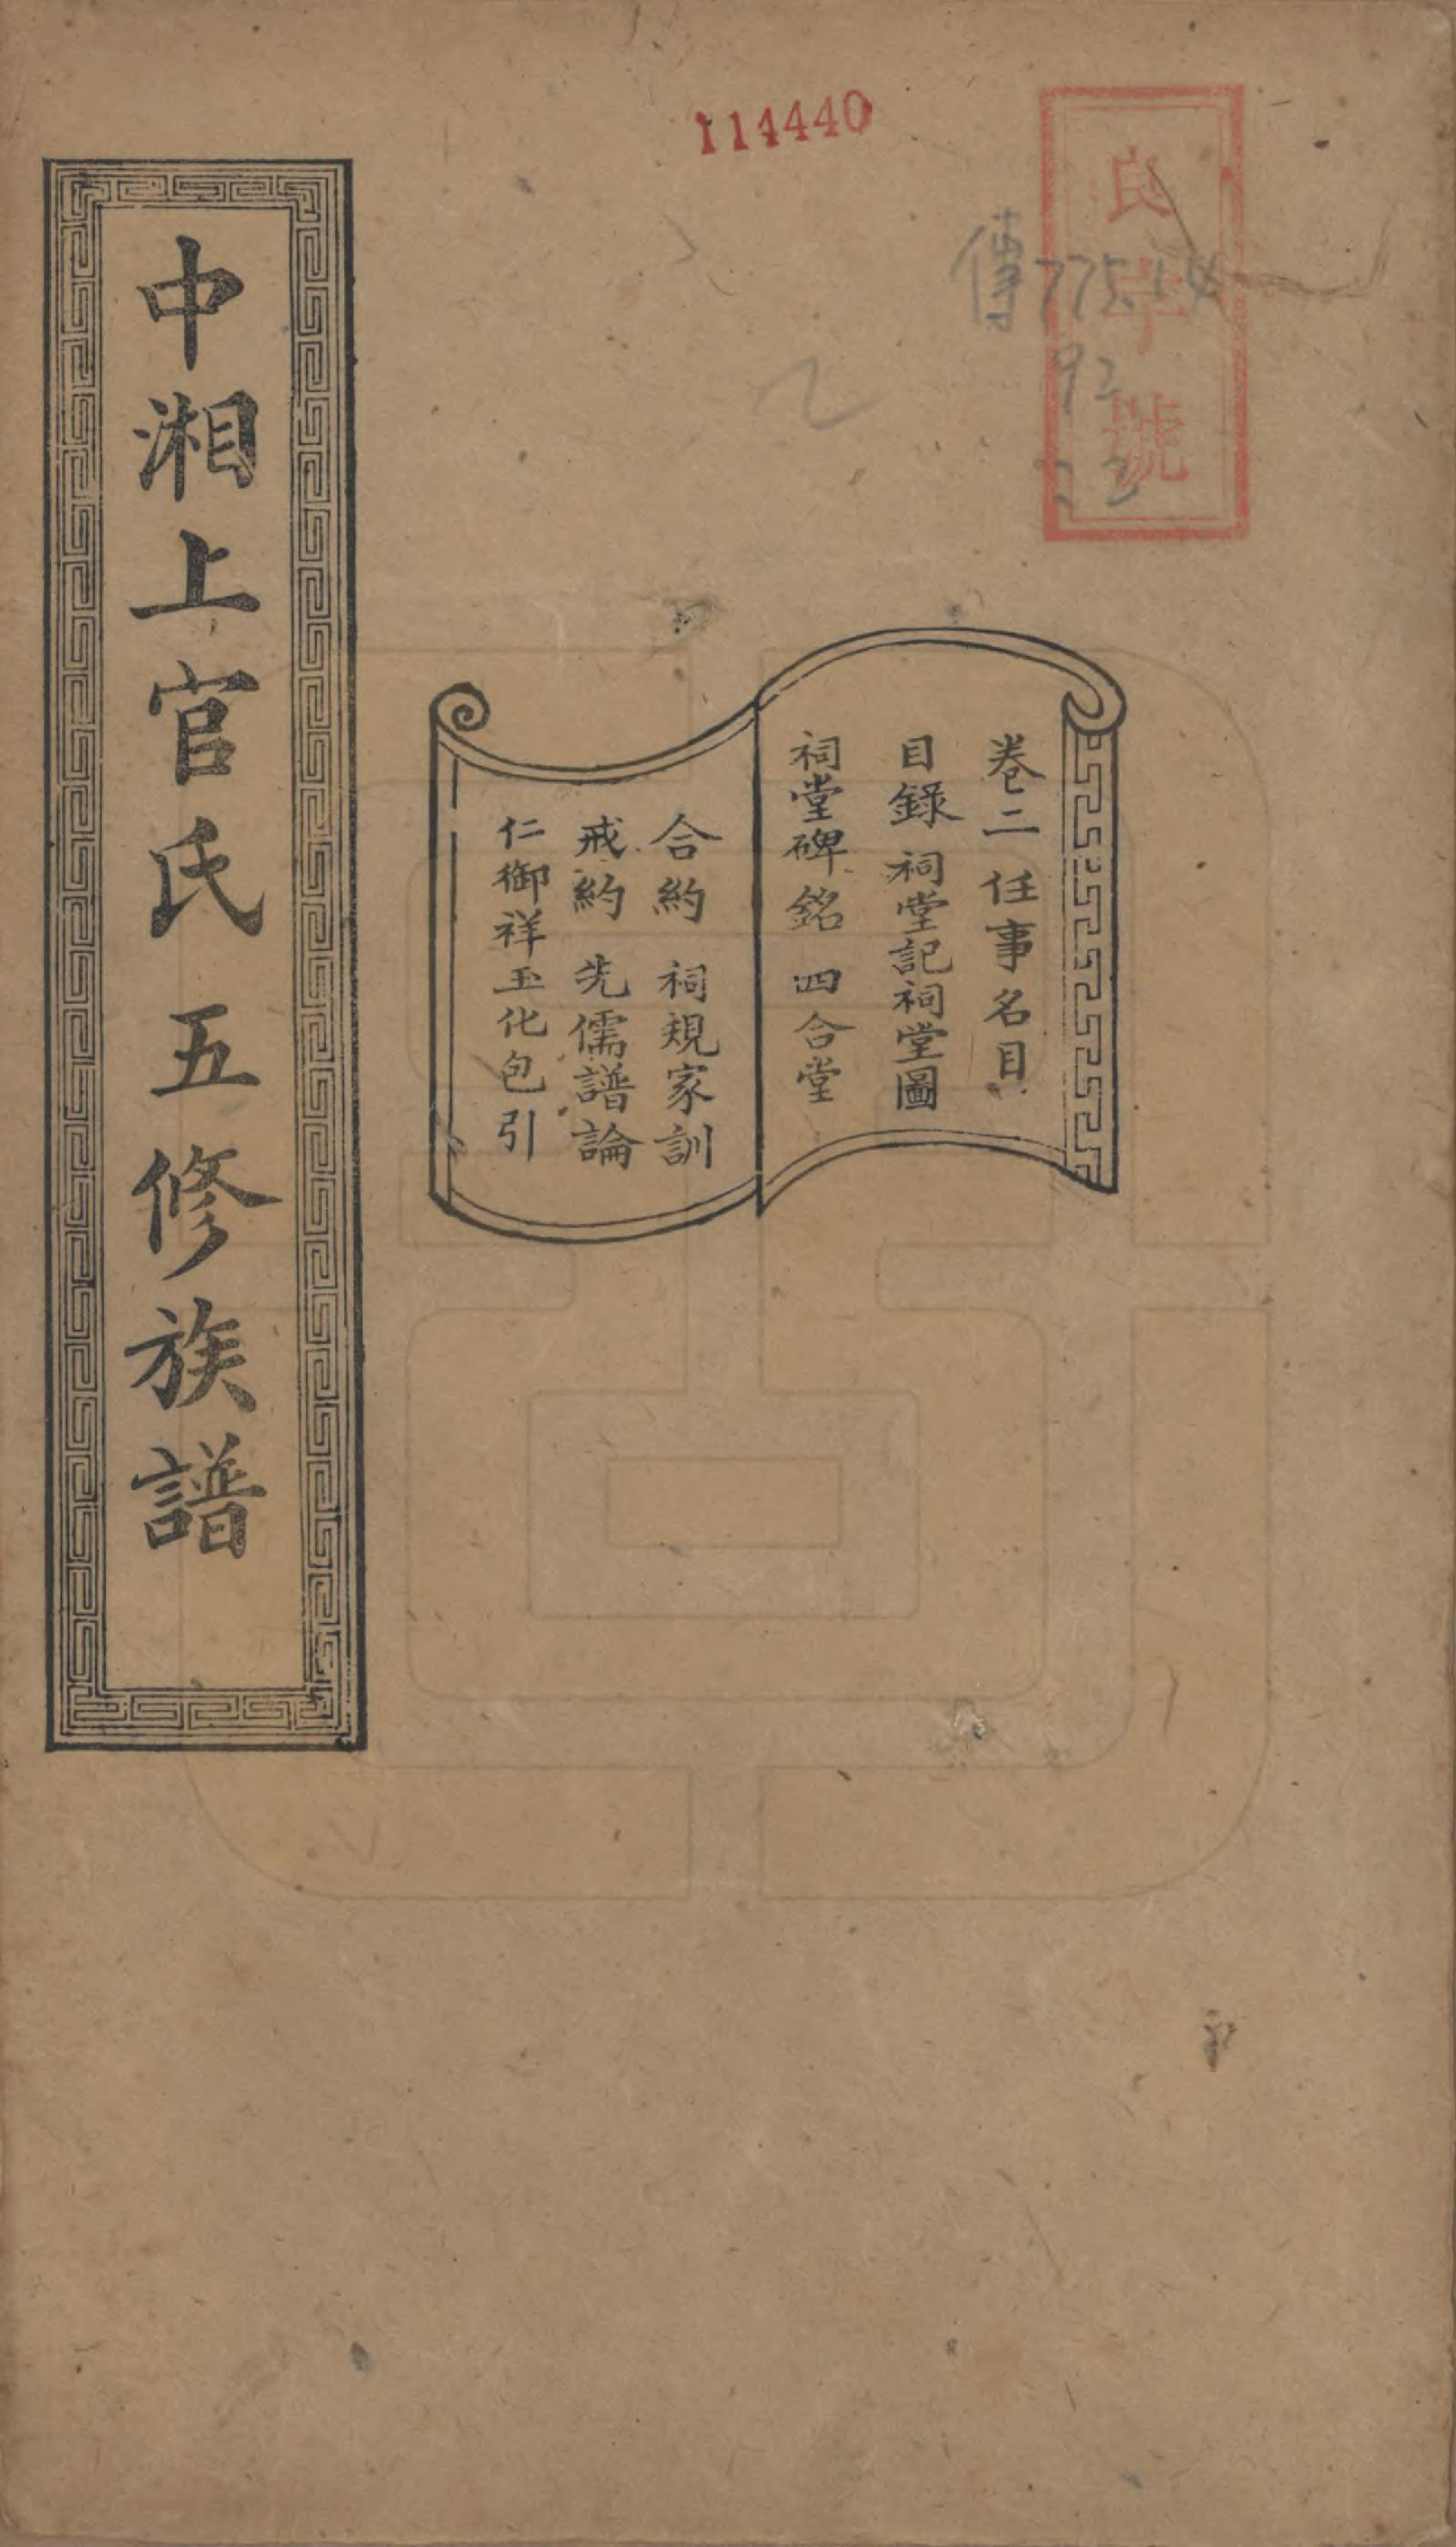 114440
良字號
傳775.14
92
:2
卷二 任事名目
目錄 祠堂記祠堂圖
祠堂碑銘 四合堂
合約 祠規家訓
戒約 先儒譜論
仁御祥玉化包引
中湘上官氏五修族譜